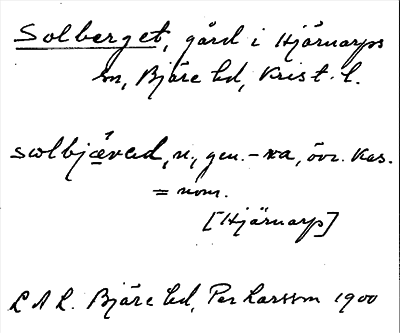 Solberget, gård i Hjärnarps
sn, Bjäre hd, Krist. l.
n., gen. -xa, övr. kas.
= nom.
[Hjärnarp]
LAL. Bjäre hd, Per Larsson 1900